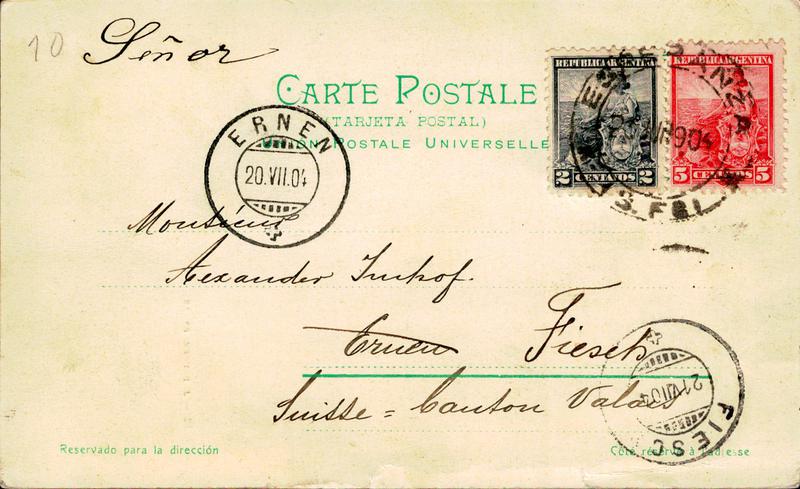 10
Señor
REPUBLICA ARGENTINA
REPUBLICA ARGENTINA
CARTE POSTALE
(TARJETA POSTAL)
UNION POSTALE UNIVERSELLE
2 CENTAVOS 2
5 CENTAVOS 5
ERNEN
20.VII.04
Monsieur
Alexander Imhof.
Ernen Fiesch
Suisse = Canton Valais
21.VII.04
FIESC
Reservado para la dirección
Côté réservé à l'adresse